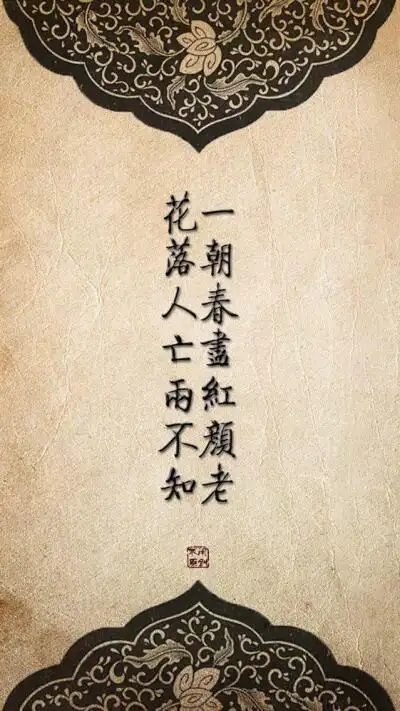 一朝春盡紅顔老
花落人亡兩不知